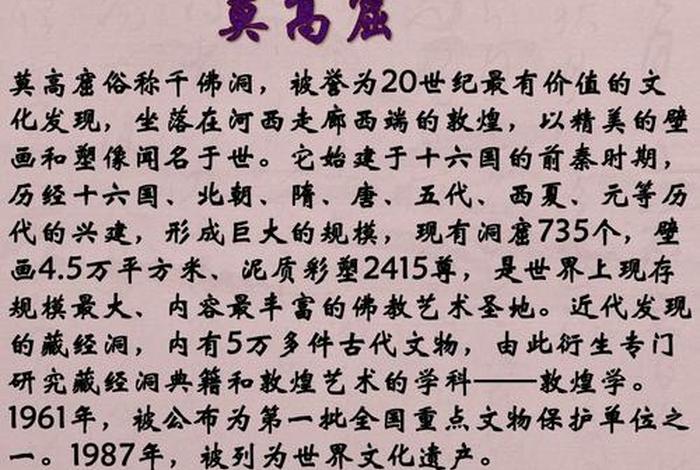 莫高窟
莫高窟俗称千佛洞，被誉为20世纪最有价值的文
化发现，坐落在河西走廊西端的敦煌，以精美的壁
画和塑像闻名于世。它始建于十六国的前秦时期，
历经十六国、北朝、隋、唐、五代、西夏、元等历
代的兴建，形成巨大的规模，现有洞窟735个，壁
画4.5万平方米、泥质彩塑2415尊，是世界上现存
规模最大、内容最丰富的佛教艺术圣地。近代发现
的藏经洞，内有5万多件古代文物，由此衍生专门
研究藏经洞典籍和敦煌艺术的学科——敦煌学。
1961年，被公布为第一批全国重点文物保护单位之
一。1987年，被列为世界文化遗产。